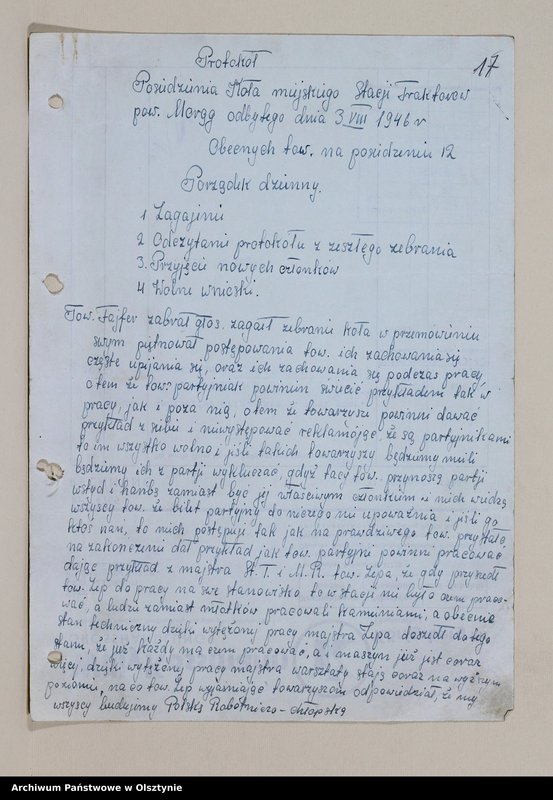 17
Protokół
Posidzinia Koła miejskigo Stacji Traktorow
pow. Morąg odbytego dnia 3 VIII 1946 r
Obecnych tow. na posidzeniu 12
Porządik dzinny.
1 Zagajini
2 Odczytani protokołu z zeszłego zebrania
3. Przyjęcie nowych członków
4 Wolne wnioski.
Tow. Fajfer zabrał głos, zagaił zebranie koła w przemówiniu
swym piętnował postępowania tow. ich zachowania się
częste upijania się, oraz ich zachowania się podczas pracy,
o tem że tow. partyjniak powinin świecić przykładem tak w
pracy, jak i poza nią, o tem że towarzysze powinni dawać
przykład z sibie i niwystępować reklamując, że są partyjnikami
to im wszystko wolno i jiśli takich towarzyszy będzimy mili
będzimy ich z partji wykluczać, gdyż tacy tow. przynoszą partji
wstyd i hańbę zamiast być jej właściwym członkim i nich widzą
wszyscy tow. że bilet partyjny do niczego ni upoważnia i jiśli go
ktoś nan, to nich postępuji tak jak na prawdziwego tow. przystało
na zakończenii dał przykład jak tow. partyjni powinni pracować
dając przykład z majstra St. T. i M. R. tow. Lepa, że gdy przyszedł
tow. Lep do pracy na swe stanowisko to w stacji ni było czem praco-
wać, a ludzi zamiast młotków pracowali kaminiami, a obecnie
stan techniczny dzięki wytężonej pracy majstra Lepa doszedł do tego
stani, że już każdy ma czem pracować, a i maszyn już jist coraz
więcej, dzięki wytężonej pracy majstra warsztaty stają coraz na wyższym
poziomii, na co tow. Lep wyjaśniając towarzyszom odpowiedział, że my
wszyscy budujemy Polskę Robotniczo-chłopską
Archiwum Państwowe w Olsztynie